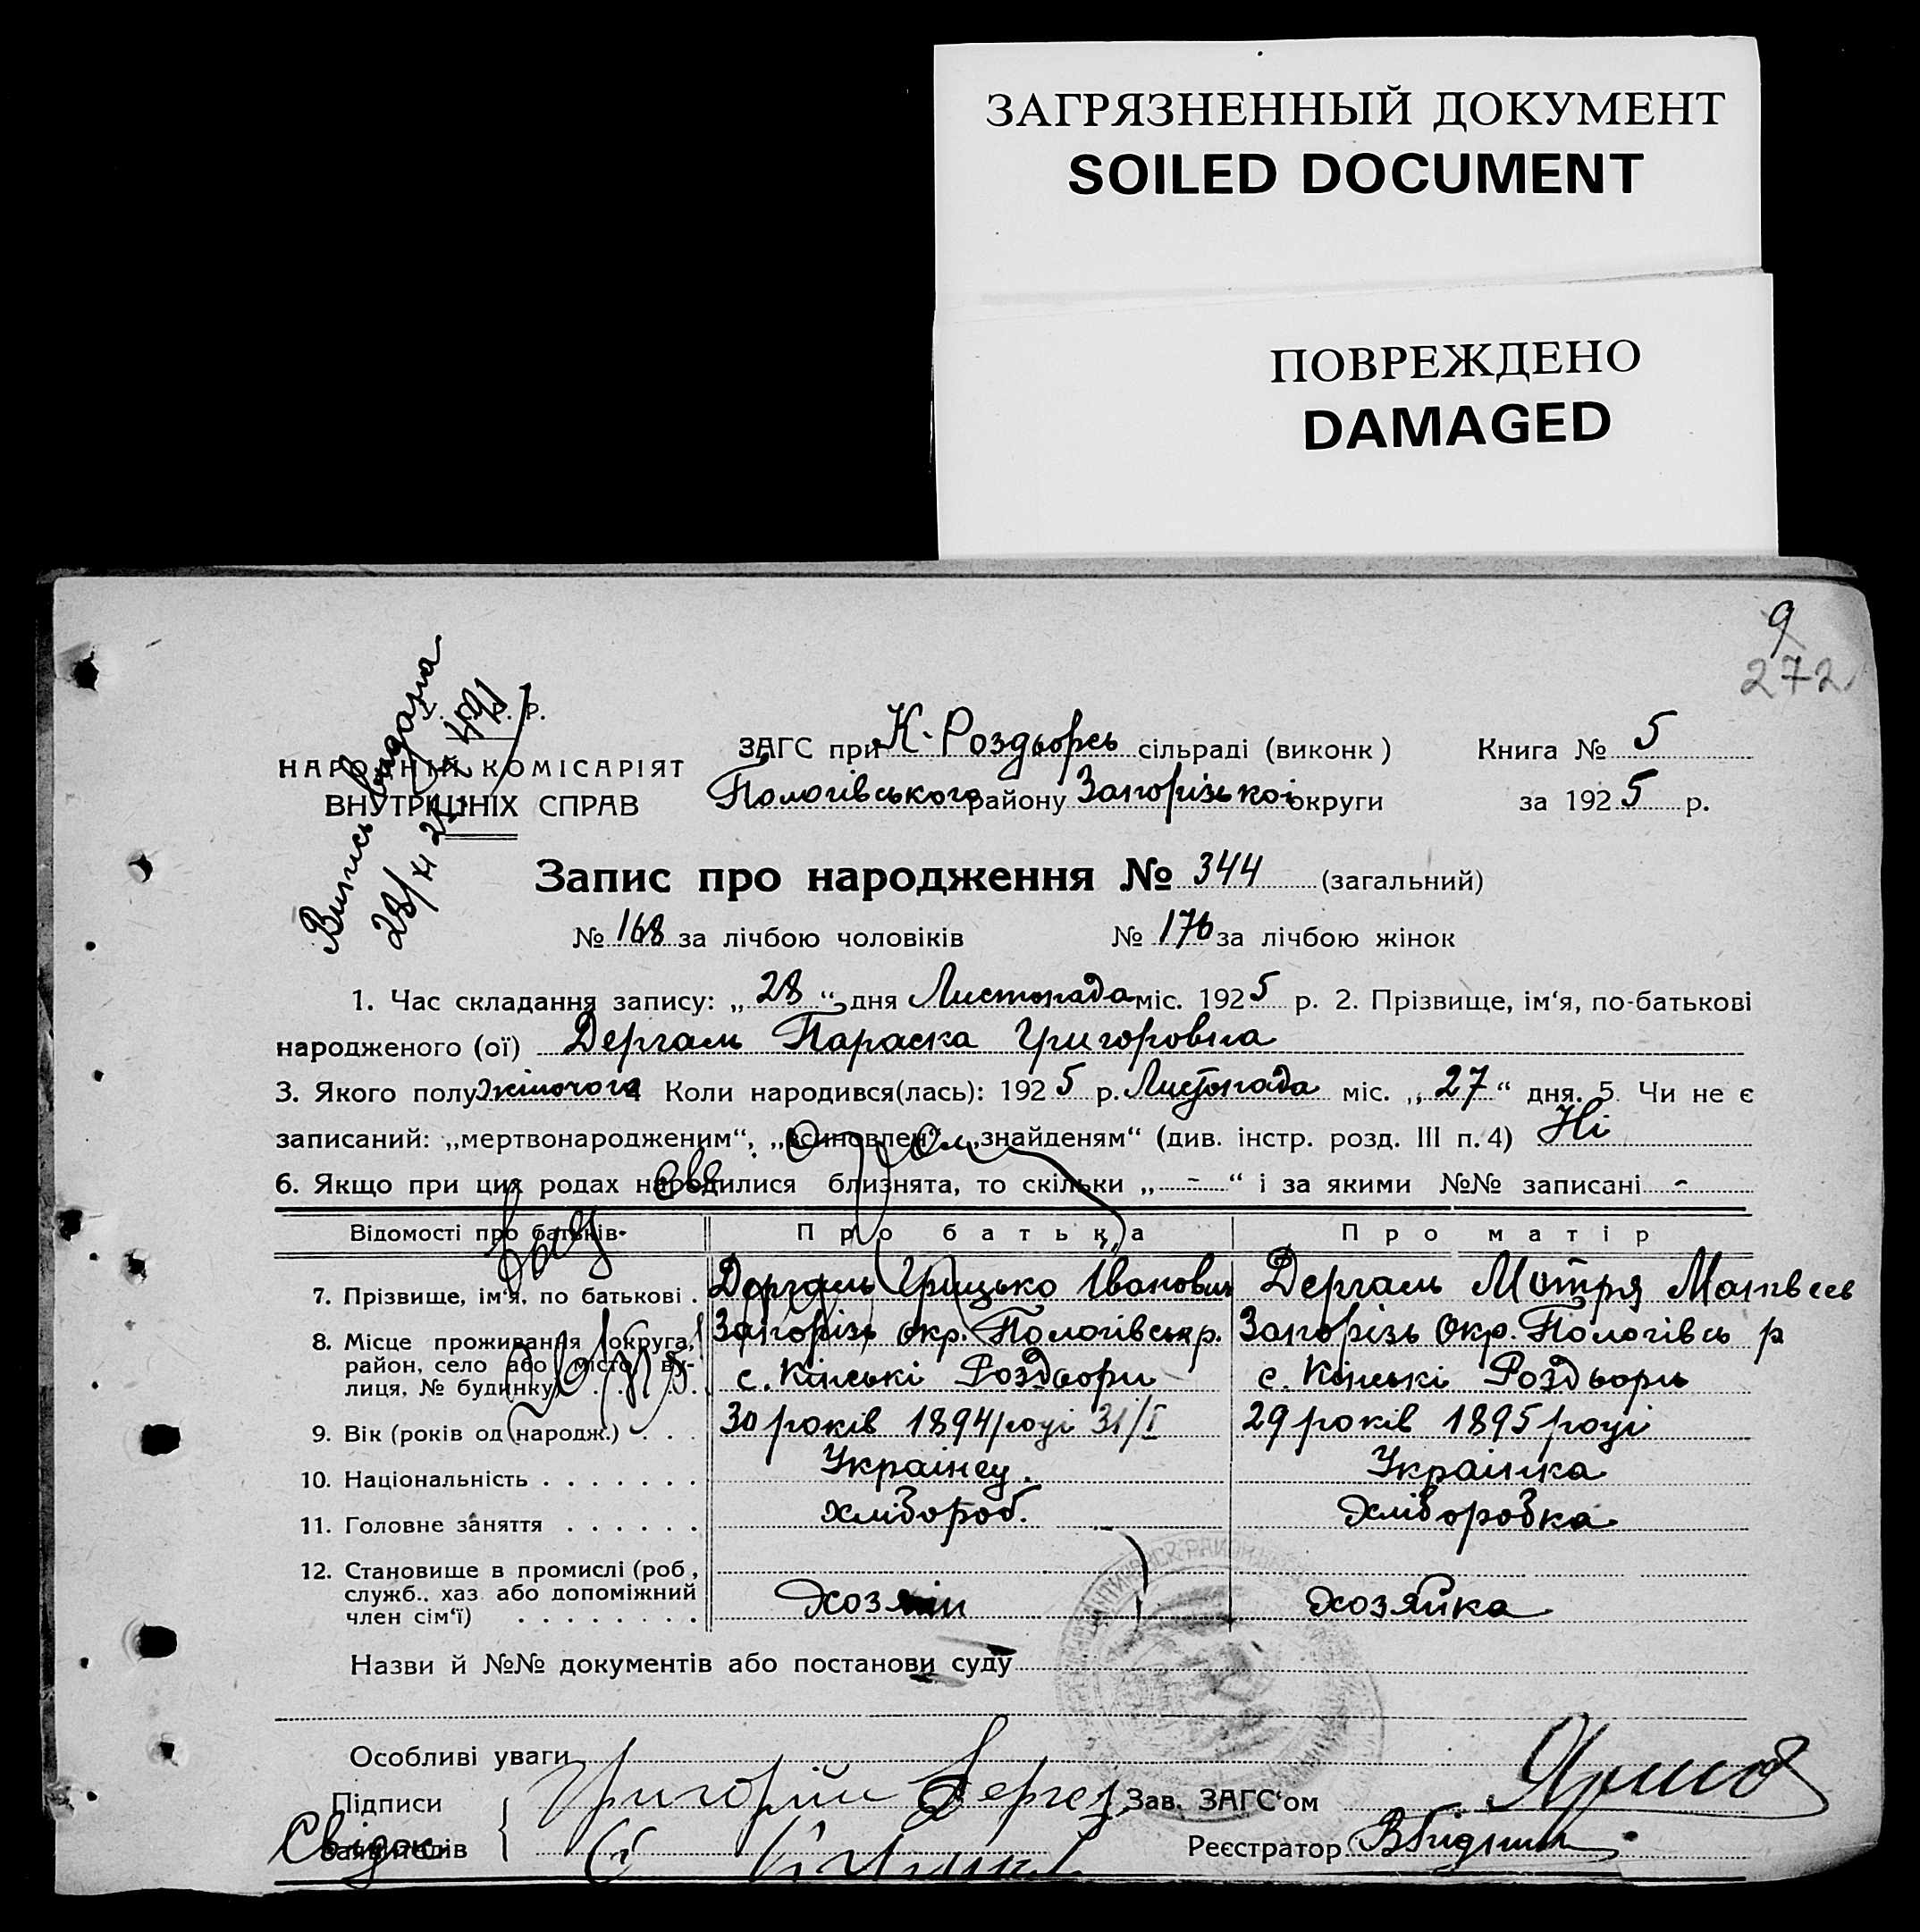 ЗАГРЯЗНЕННЫЙ ДОКУМЕНТ
SOILED DOCUMENT
ПОВРЕЖДЕНО
DAMAGED
9
272
Р.
НАРОДНІЙ КОМІСАРІЯТ
ВНУТРІШНІХ СПРАВ
Випись видана
28/XI
ЗАГС при К-Роздьорсь сільраді (виконк)
Пологівського району Запорізькоі округи
Книга № 5
за 1925 р.
Запис про народження № 344 (загальний)
№ 168 за лічбою чоловіків № 176 за лічбою жінок
1. Час складання запису: „28“ дня Листопада міс. 1925 р. 2. Прізвище, ім‘я, по-батькові
народженого (ої) Дергаль Параска Григоровна
3. Якого полу жіночого Коли народився(лась): 1925 р. Листопада міс. „27“ дня. 5. Чи не є
записаний: „мертвонародженим“, „всиновлен“ „знайденям“ (див. інстр. розд. III п. 4) Ні
6. Якщо при цих родах народилися близнята, то скільки „ - “ і за якими №№ записані -
Відомості про батьків- Про батька Про матір
7. Прізвище, ім‘я, по батькові . Дергаль Грицько Іванович Дергаль Мотря Матвеєв
8. Місце проживання округа, Запорізь окр. Пологівськ р. Запорізь Окр. Пологівсь р
район, село або місто, ву-
лиця, № будинку . . . . с. Кінські Роздьори с. Кінські Роздьори
9. Вік (років од народж.) . . . 30 років 1894 році 31/I 29 років 1895 році
10. Національність . . . . . . . Українец. Украинка
11. Головне заняття . . . . . . хлібороб. хлібороб­ка
12. Становище в промислі (роб.,
служб.. хаз або допоміжний
член сім‘ї) . . . . . . . . Хозяїн хозяйка
Назви й №№ документів або постанови суду
Особливі уваги
Підписи Григорій Дергал Зав. ЗАГС‘ом
Свідок
заявителів
Реєстратор